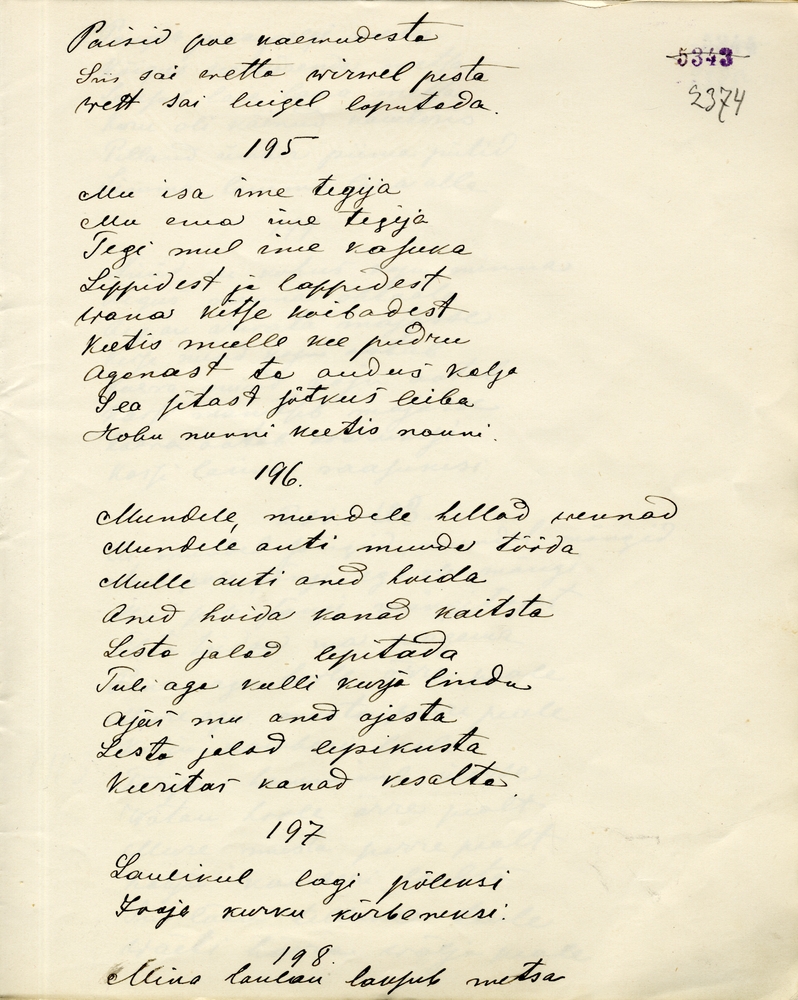 5343
2374
Paisid poe kaemudesta
Siis sai wetta wirwel pesta
wett sai luigel loputada.
195
Mu isa ime tegija
Mu ema ime tegija
Tegi mul ime kasuka
Lippidest ja lappidest
wana kitse koibadest
Keetis mulle kee pudru
Aganast ta andus kalja
Sea sitast sõtkus leiba
Hobu nunni keetis nouni.
196.
Mundele, mundele hellad wennad
Mundele anti muuda tööda
Mulle anti aned hoida
Aned hoida kanad kaitsta
Lesta jalad lepitada
Tuli aga kulli kurja lindu
Ajas mu aned ajasta
Lesta jalad lepikusta
Keeritas kanad kesalta.
197
Laulikul lagi põleksi
Jooja kurku kõrbeneksi.
198.
Mina laulan laupub metsa